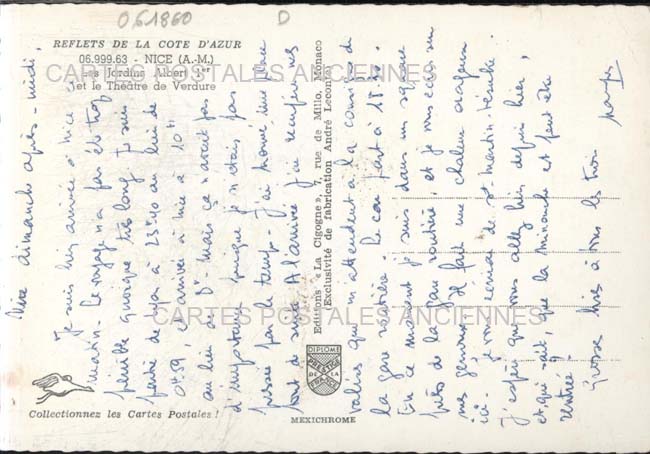 061860
D
REFLETS DE LA COTE D'AZUR
06.999.63 - NICE (A.-M.)
Les Jardins Albert 1er
et le Théâtre de Verdure
CARTES POSTALES ANCIENNES
Nice dimanche après-midi,
Je suis bien arrivée à Nice ce
matin. Le voyage n'a pas été trop
pénible quoique très long. Je suis
partie de Lyon à 23h40 au lieu de
0h59, et arrivée à Nice à 10h
au lieu de 8h. Mais ça n'avait pas
d'importance puisque je n'étais pas
pressée par le temps. J'ai trouvé une place
tout de suite. A l'arrivée j'ai mis mes
valises qui m'attendent à la consigne de
la gare routière. Le car part à 15h
En ce moment je suis dans un square
près de la gare routière et je vous écris sur
mes genoux. Il fait une chaleur orageuse
ici. Je vous écrirai de St-Martin-Vésubie.
J'espère que vous allez bien depuis hier,
et, qui sait, que la minouche est peut-être
rentrée ?
Grosses bises à tous les trois
Editions « La Cigogne », 7, rue de Millo, Monaco
Exclusivité de fabrication André Leconte
CARTES POSTALES ANCIENNES
DIPLOME
PRESTIGE
DE LA
FRANCE
Collectionnez les Cartes Postales !
MEXICHROME